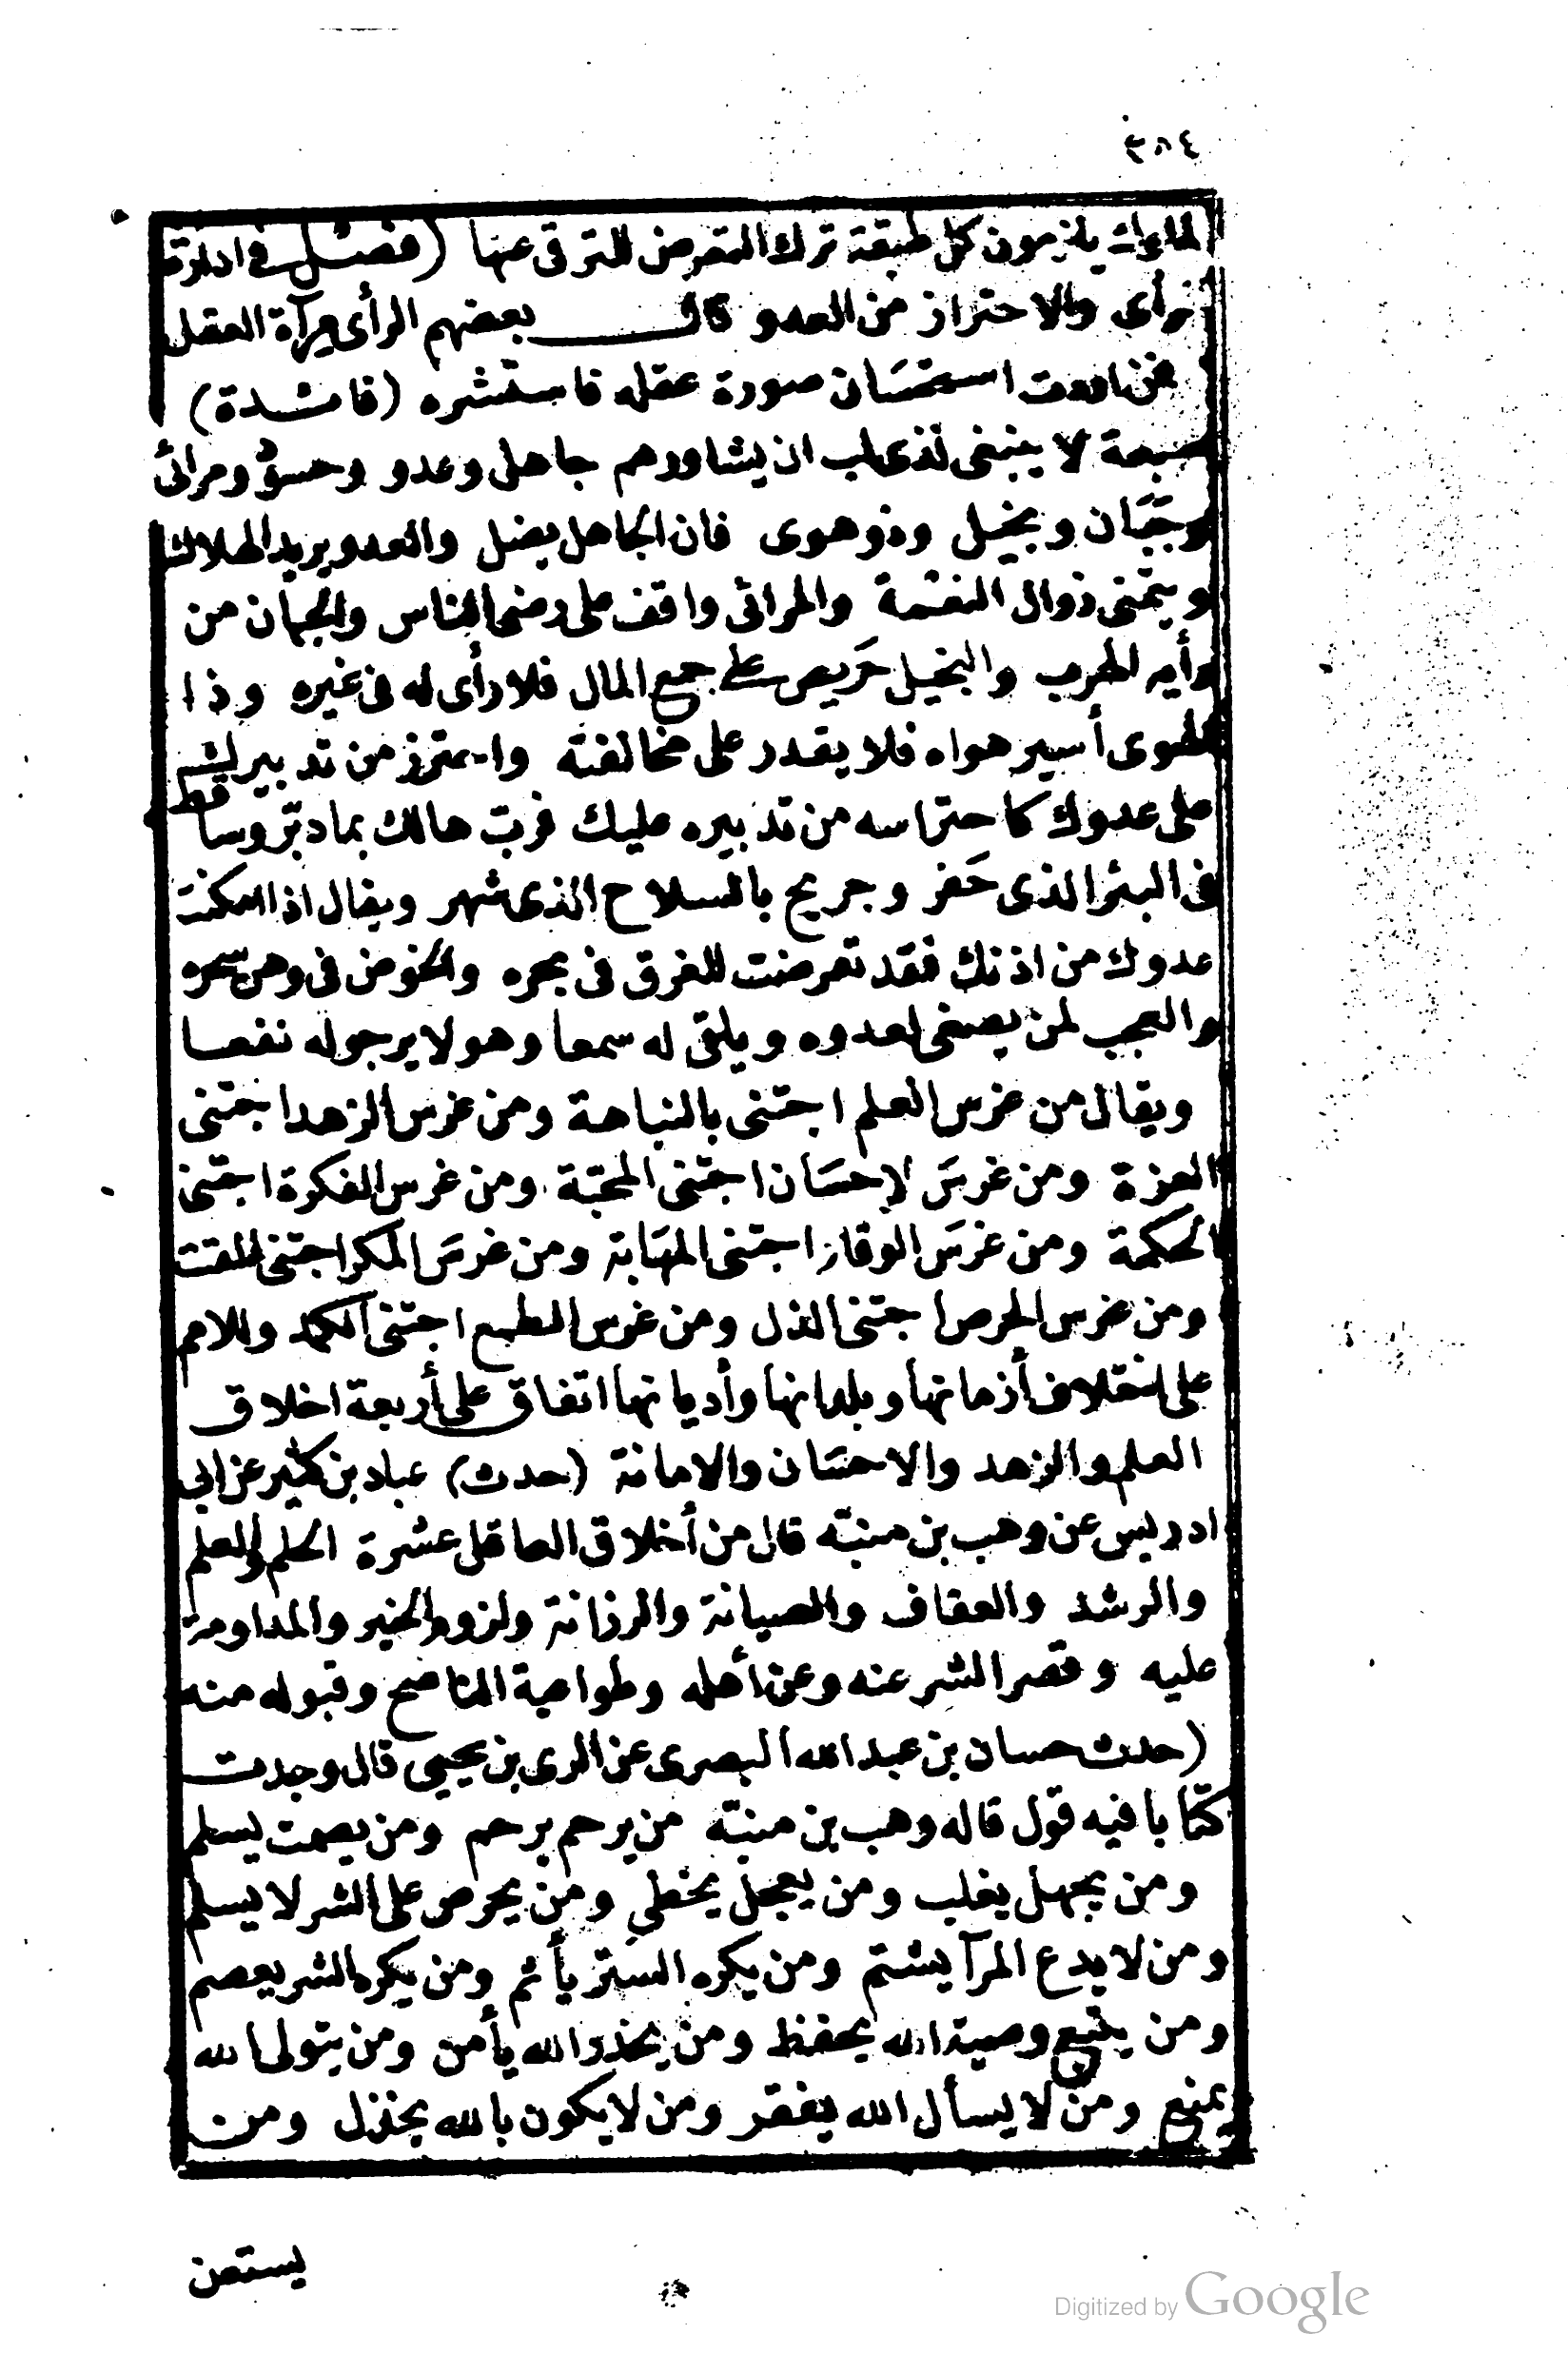 ٣٨٤
الملوك يلزمون كل طبقة ترك التعرض للترقى عنها (فصل فى ادارة
الرأى والاحتراز من العدو قال بعضهم الرأى مرآة العقل
فمن اردت استحسان صورة عقله فاستشره (فائدة)
سبعة لا ينبغى لذى لب ان يشاورهم جاهل وعدو وحسود ومرائى
وجبان وبخيل وذو هوى فان الجاهل يضل والعدو يريد الهلاك
ويتمنى زوال النعمة والمرائى واقف على رضى الناس والجبان من
رأيه الهرب والبخيل حريص على جمع المال فلا رأى له فى غيره وذا
الهوى أسير هواه فلا يقدر على مخالفته واحترز من تدبير
على عدوك كاحتراسه من تدبيره عليك فرب هالك بما دبر وساقط
فى البئر الذى حفر وجريح بالسلاح الذى شهر ويقال اذا امكنت
عدوك من اذنك فقد تعرضت للغرق فى بحره والخوض فى وهن سحره
والعجب لمن يصغى لعدوه ويلقى له سمعا وهو لا يرجو له نفعا
ويقال من غرس العلم اجتنى بالنباهة ومن غرس الزهد اجتنى
العزة ومن غرس لاحسان اجتنى المحبة ومن غرس الفكرة اجتنى
الحكمة ومن غرس الوقار اجتنى المهابة ومن غرس المكر اجتنى المقت
ومن غرس الحرص اجتنى الذل ومن غرس الطمع اجتنى الكمد وللامم
على اختلاف أزمانها وبلدانها وأديانها اتفاق على أربعة اخلاق
العلم والزهد والاحسان والامانة (حدث) عباد بن كثير عن ابى
ادريس عن وهب بن منبه قال من أخلاق العاقل عشرة الحلم والعلم
والرشد والعفاف والصيانة والرزانة ولزوم الخير والمداومة
عليه وقصر الشر عنه وعن أهله وطواعية الناصح وقبوله منه
(حدث حسان بن عبد الله البصرى عن السرى بن يحيى قال وجدت
كتابا فيه قول قاله وهب بن منبه من يرحم يرحم ومن يصمت يسلم
ومن يجهل يغلب ومن يعجل يخطى ومن يحرص على الشر لا يسلم
ومن لا يدع المرآ يشتم ومن يكره الستر يأثم ومن يكره الشر يعصم
ومن يتبع وصية الله يحفظ ومن يحذر الله يأمن ومن يتولى الله
يمنع ومن لا يسأل الله يفقر ومن لا يكون بالله يخذل ومن
يستعن
Digitized by Google